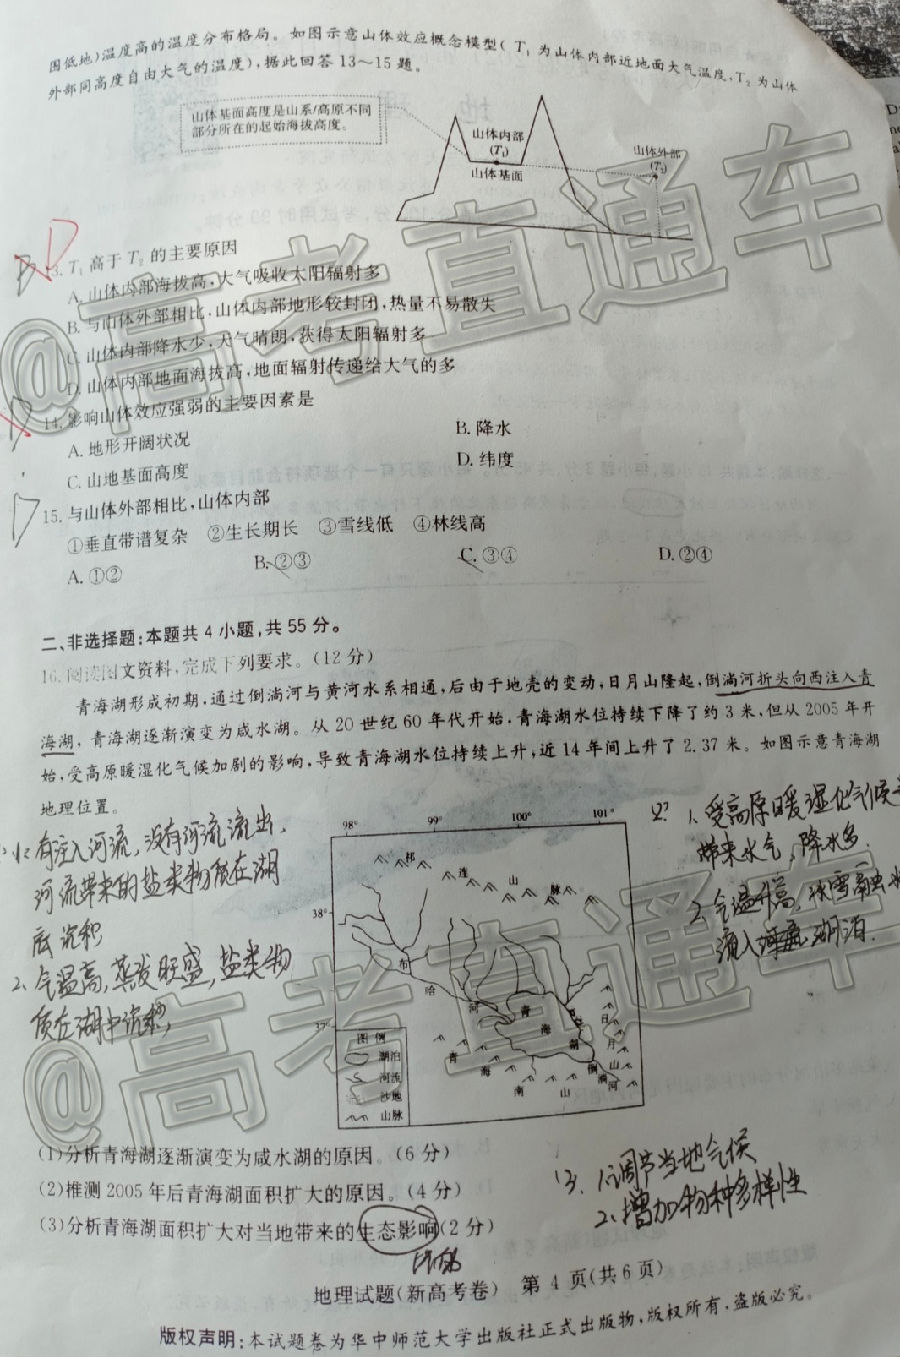 围低地)温度高的温度分布格局。如图示意山体效应概念模型(T₁为山体内部近地面大气温度,T₂为山体
外部同高度自由大气的温度),据此回答13～15题。
山体基面高度是山系/高原不同
部分所在的起始海拔高度。
山体内部
(T₁)
山体基面
山体外部
(T₂)
D
B
13.T₁高于T₂的主要原因
A.山体内部海拔高,大气吸收太阳辐射多
B.与山体外部相比,山体内部地形较封闭,热量不易散失
C.山体内部降水少,天气晴朗,获得太阳辐射多
D.山体内部地面海拔高,地面辐射传递给大气的多
D
14.影响山体效应强弱的主要因素是
A.地形开阔状况
B.降水
C.山地基面高度
D.纬度
D
15.与山体外部相比,山体内部
①垂直带谱复杂 ②生长期长 ③雪线低 ④林线高
A.①②
B.②③
C.③④
D.②④
二、非选择题:本题共4小题,共55分。
16.阅读图文资料,完成下列要求。(12分)
青海湖形成初期,通过倒淌河与黄河水系相通,后由于地壳的变动,日月山隆起,倒淌河折头向西注入青
海湖,青海湖逐渐演变为咸水湖。从20世纪60年代开始,青海湖水位持续下降了约3米,但从2005年开
始,受高原暖湿化气候加剧的影响,导致青海湖水位持续上升,近14年间上升了2.37米。如图示意青海湖
地理位置。
有注入河流,没有河流流出,
河流带来的盐类物质在湖
底沉积
2.气温高,蒸发旺盛,盐类物
质在湖中沉积,
98° 99° 100° 101°
祁 连 山 脉
38°
37°
布 哈 河
青 海 湖
日 月 山
倒 淌 河
青 海 南 山
图 例
湖泊
河流
沙地
山脉
1.受高原暖湿化气候
带来水气,降水多.
2.气温升高,冰雪融水
流入河流,湖泊.
(1)分析青海湖逐渐演变为咸水湖的原因。(6分)
(2)推测2005年后青海湖面积扩大的原因。(4分)
(3)分析青海湖面积扩大对当地带来的生态影响(2分)
3.1.调节当地气候
2.增加物种多样性
地理试题(新高考卷) 第4页(共6页)
版权声明:本试题卷为华中师范大学出版社正式出版物,版权所有,盗版必究。
@高考直通车
@高考直通车